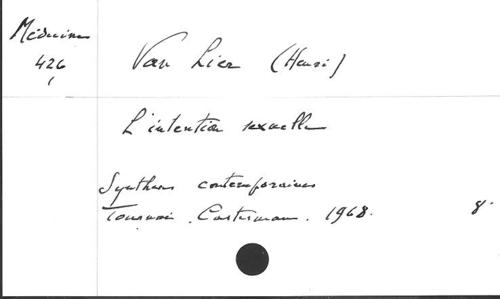 Médecine
426
Van Lier (Henri)
L'intention sexuelle
Synthèses contemporaines
Tournai, Casterman. 1968. 8°